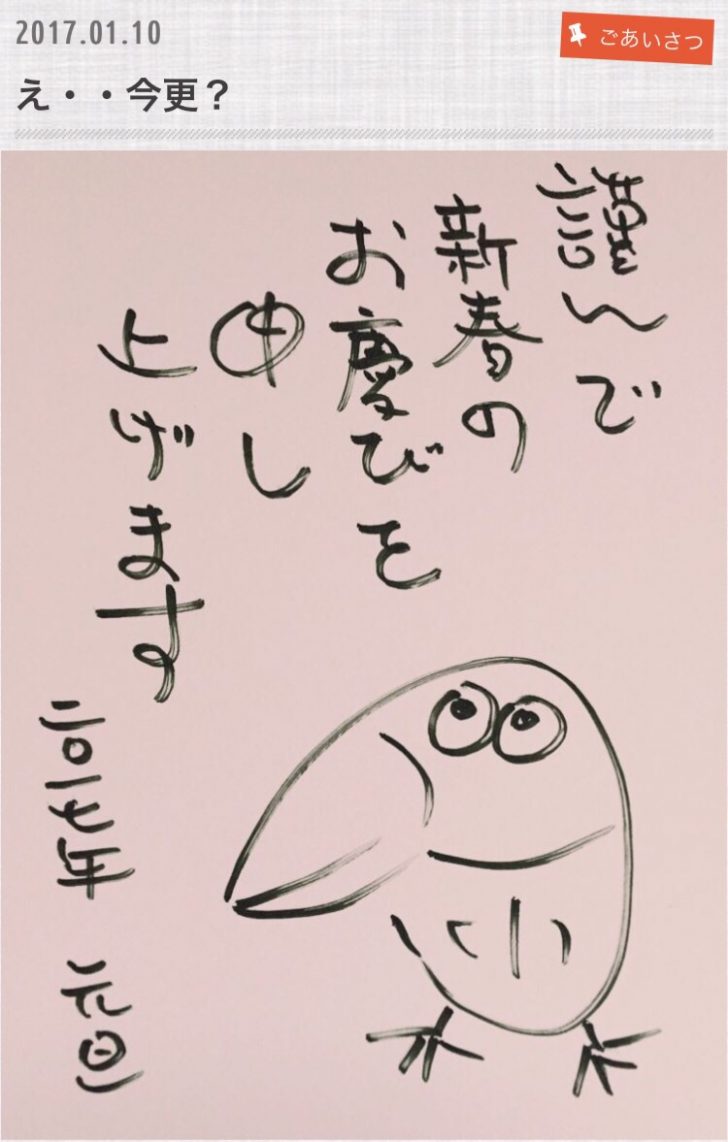 2017.01.10
ごあいさつ
え・・今更？
謹んで
新春の
お慶びを
申し
上げます
二〇一七年 元旦
小